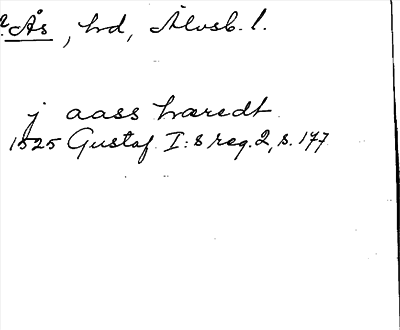 Ås, hd, Älvsb. l.
j aass hæredt
1525 Gustaf I:s reg. 2, s. 177